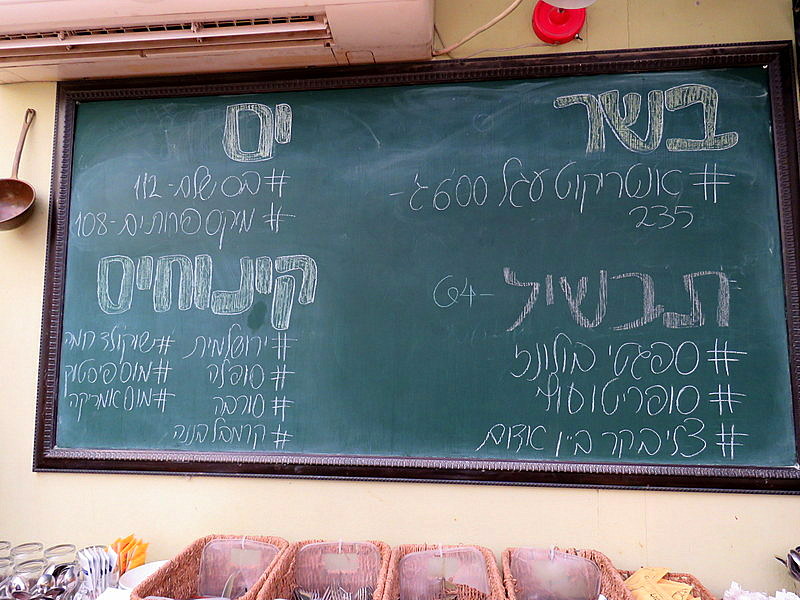 בשר
# אנטריקוט עגל 600 ג' -
235
תבשיל -64
# ספגטי בולונז
# סופריטו עוף
# צלי בקר ב"ין אדום
ים
# בס שלם - 112
# מיקס פרות ים - 108
קינוחים
# ירושלמית
# סופלה
# סורבה
# קרמבל בננה
# שוקולד חמה
# מוס פיסטוק
# מוס אמריקה